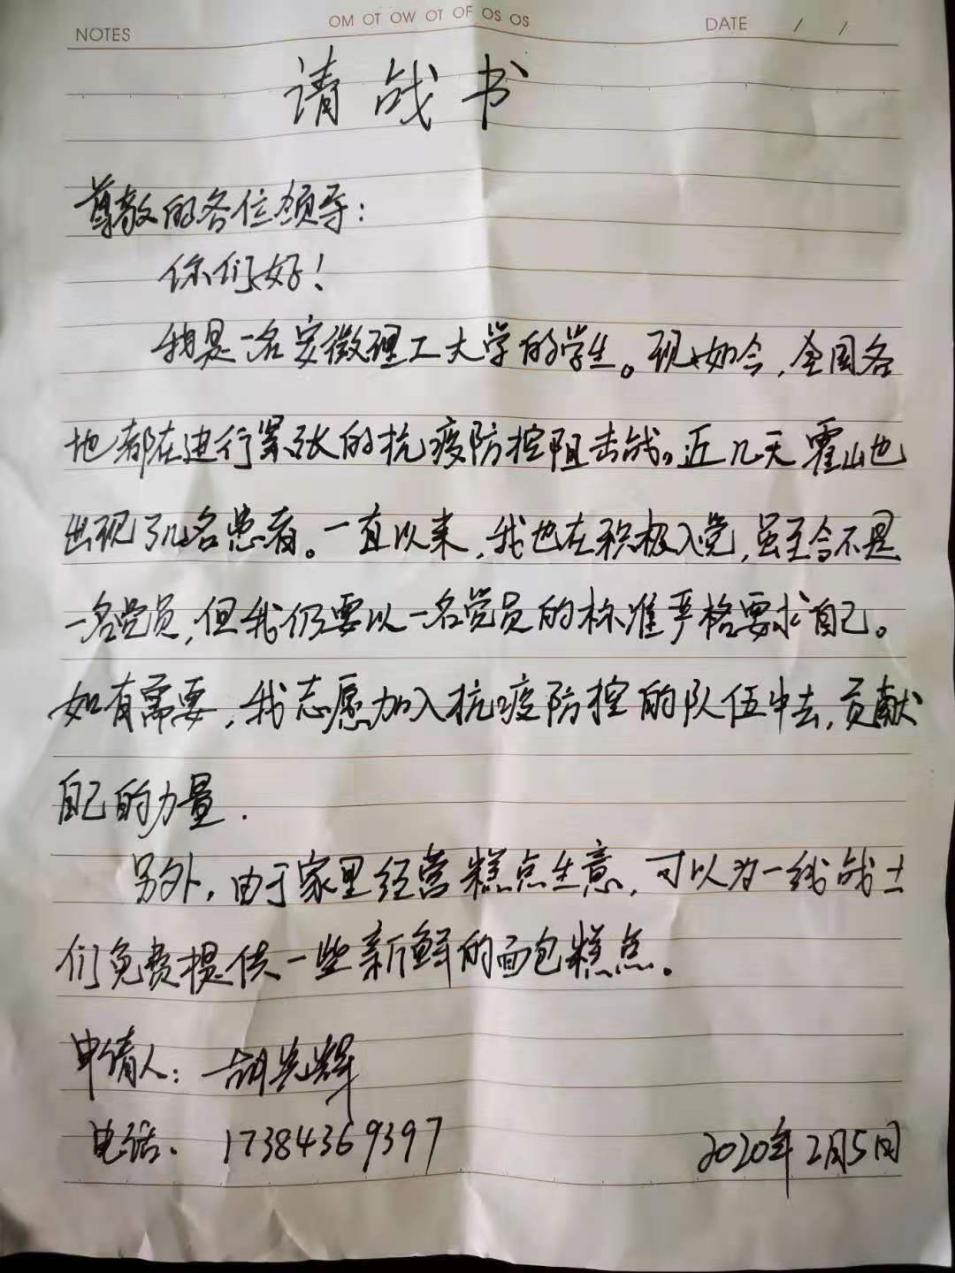 NOTES
OM OT OW OT OF OS OS
DATE / /
请战书
尊敬的各位领导：
你们好！
我是一名安徽理工大学的学生。现如今，全国各
地都在进行紧张的抗疫防控阻击战。近几天霍山也
出现了几名患者。一直以来，我也在积极入党，虽至今不是
一名党员，但我仍要以一名党员的标准严格要求自己。
如有需要，我志愿加入抗疫防控的队伍中去，贡献
自己的力量.
另外，由于家里经营糕点生意，可以为一线战士
们免费提供一些新鲜的面包糕点。
申请人：胡先辉
电话：17384369397
2020年2月5日